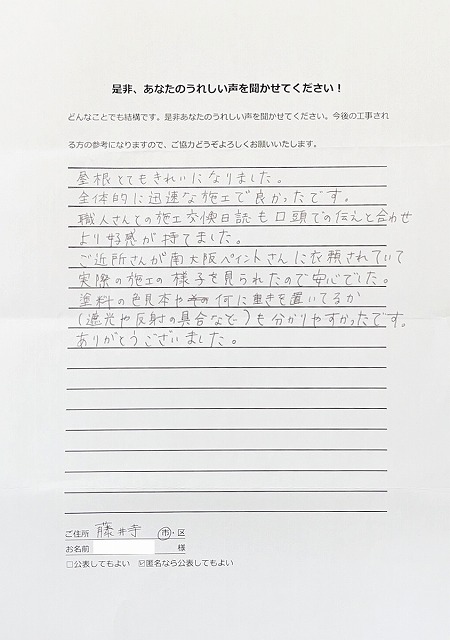 是非、あなたのうれしい声を聞かせてください！
どんなことでも結構です。是非あなたのうれしい声を聞かせてください。今後の工事され
る方の参考になりますので、ご協力どうぞよろしくお願いいたします。
屋根とてもきれいになりました。
全体的に迅速な施工で良かったです。
職人さんとの施工交換日誌も口頭での伝えと合わせ
より好感が持てました。
ご近所さんが南大阪ペイントさんに依頼されていて
実際の施工の様子を見られたので安心でした。
塗料の色見本や何に重きを置いてるか
(遮光や反射の具合など)も分かりやすかったです。
ありがとうございました。
ご住所 藤井寺 市・区
お名前 様
□公表してもよい ☑匿名なら公表してもよい